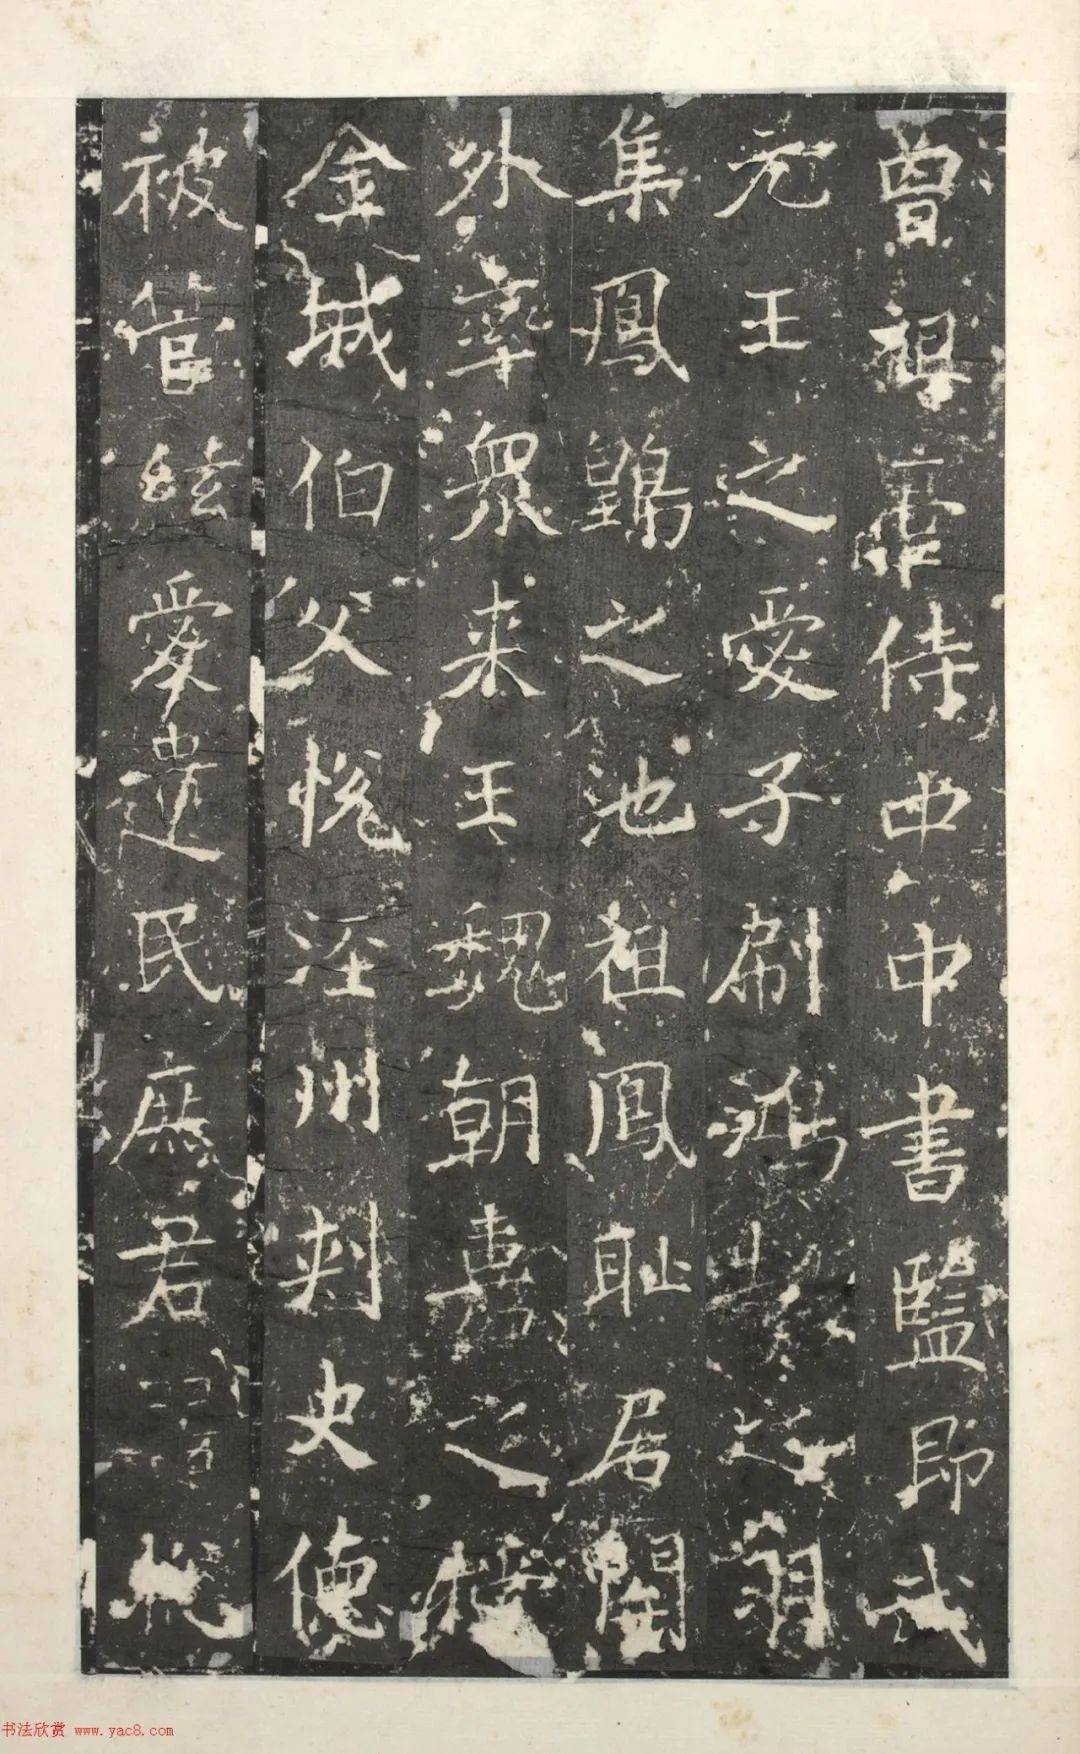 曾祖侍中中書監即武
元王之愛子刷鴻之羽
集鳳之池祖鳳恥居関
外率衆来王魏朝嘉之授
金城伯父悦涇州刺史德
被管絃愛遺民庶君
书法欣赏 www.yac8.com